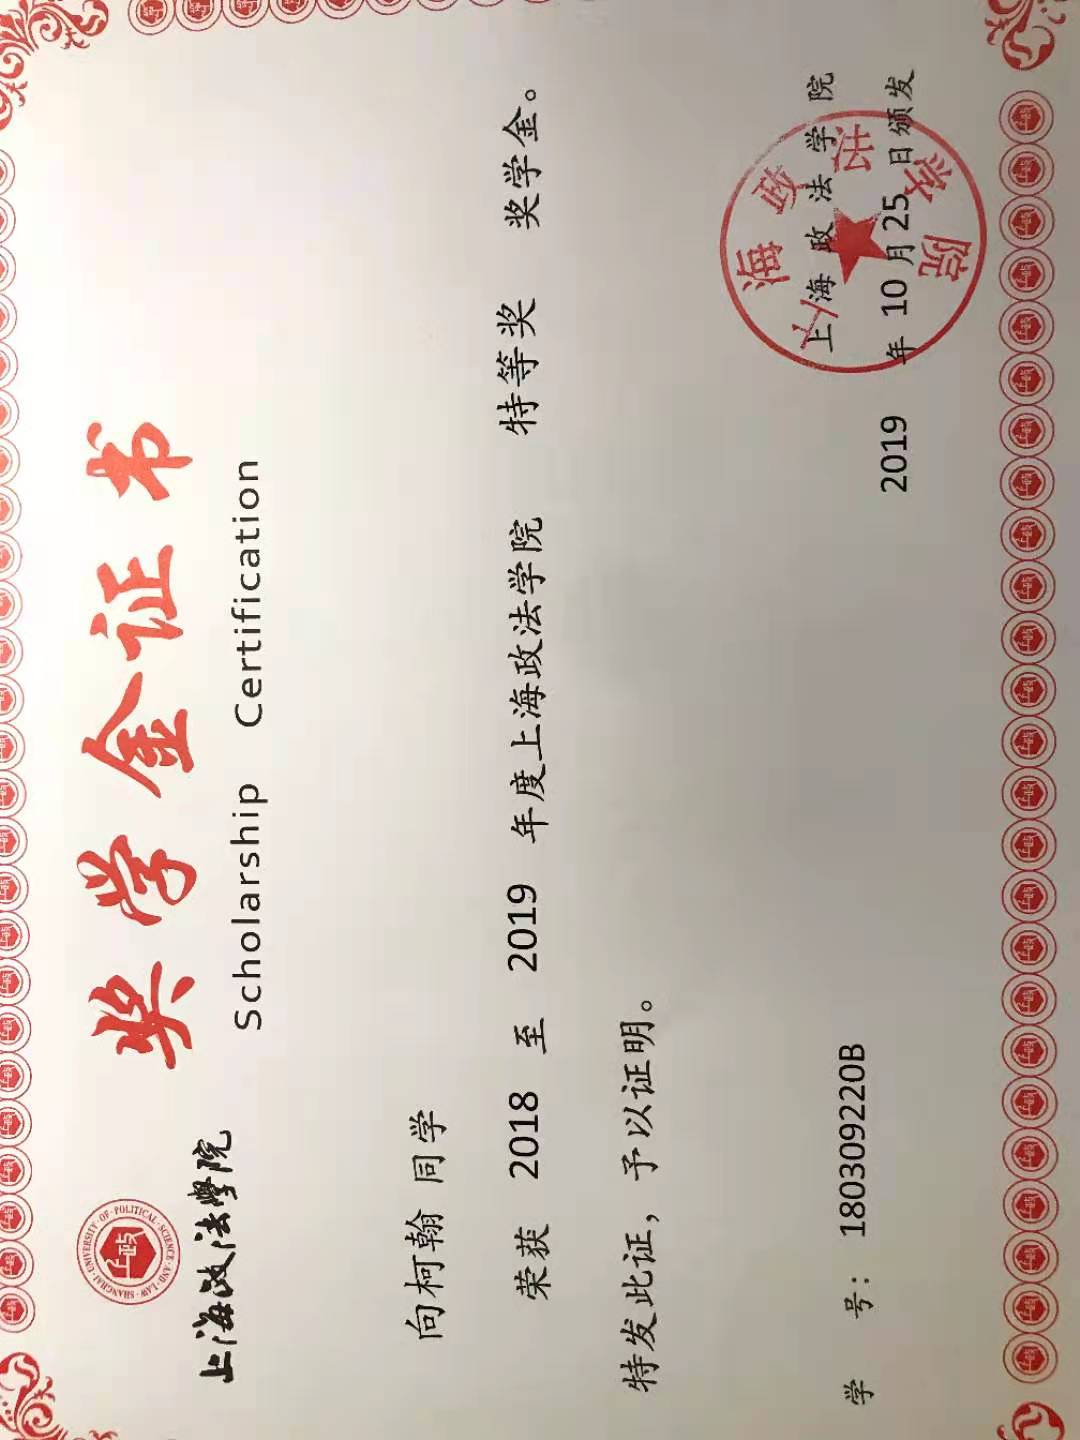 SHANGHAI·UNIVERSITY·OF·POLITICAL·SCIENCE·AND·LAW
上海政法學院
奖学金证书
Scholarship Certification
向柯翰 同学
荣获 2018 至 2019 年度上海政法学院 特等奖 奖学金。
特发此证，予以证明。
学 号： 180309220B
上海政法学院
2019 年 10 月 25 日颁发
上海政法学院